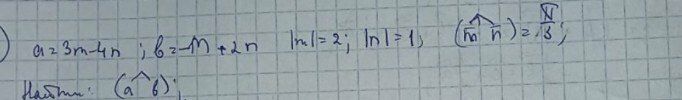 ) a=3m-4n ; b=-m+2n |m|=2; |n|=1; (m^n)=π/3;
Найти: (a^b);